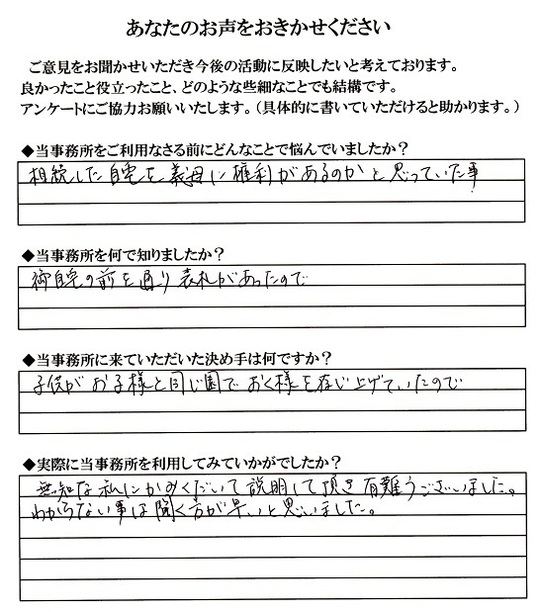 あなたのお声をおきかせください
ご意見をお聞かせいただき今後の活動に反映したいと考えております。
良かったこと役立ったこと、どのような些細なことでも結構です。
アンケートにご協力お願いいたします。（具体的に書いていただけると助かります。）
◆当事務所をご利用なさる前にどんなことで悩んでいましたか？
相続した自宅を義母に権利があるのかと思っていた事
◆当事務所を何で知りましたか？
御自宅の前を通り表札があったので
◆当事務所に来ていただいた決め手は何ですか？
子供がお子様と同じ園でおく様を存じ上げていたので
◆実際に当事務所を利用してみていかがでしたか？
無知な私にかみくだいて説明して頂き有難うございました。
わからない事は聞く方が早いと思いました。